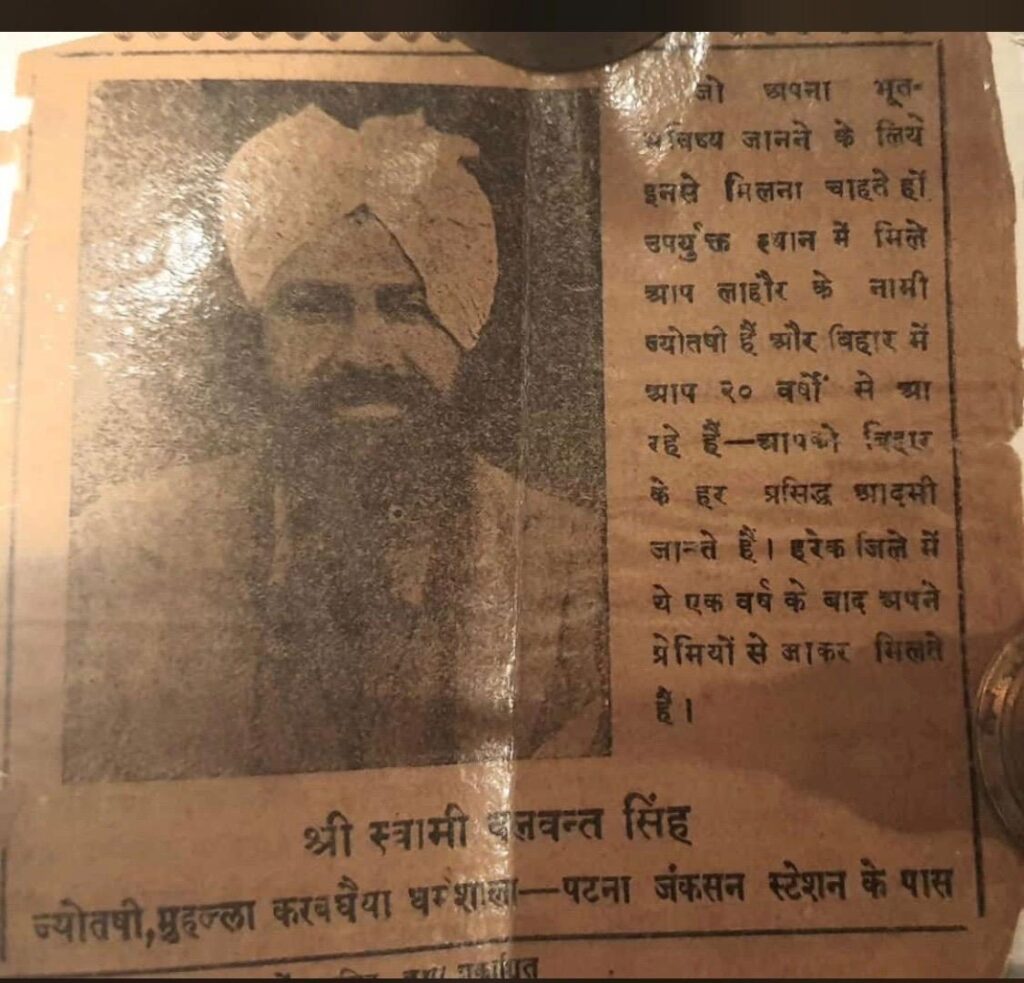 जो अपना भूत-
भविष्य जानने के लिये
इनसे मिलना चाहते हों
उपर्युक्त स्थान में मिले
आप लाहौर के नामी
ज्योतषी हैं और बिहार में
आप २० वर्षों से आ
रहे हैं—आपको बिहार
के हर प्रसिद्ध आदमी
जानते हैं। हरेक जिले में
ये एक वर्ष के बाद अपने
प्रेमियों से आकर मिलते
हैं।
श्री स्वामी बलवन्त सिंह
ज्योतषी, मुहल्ला करबघैया धर्मशाला—पटना जंकसन स्टेशन के पास